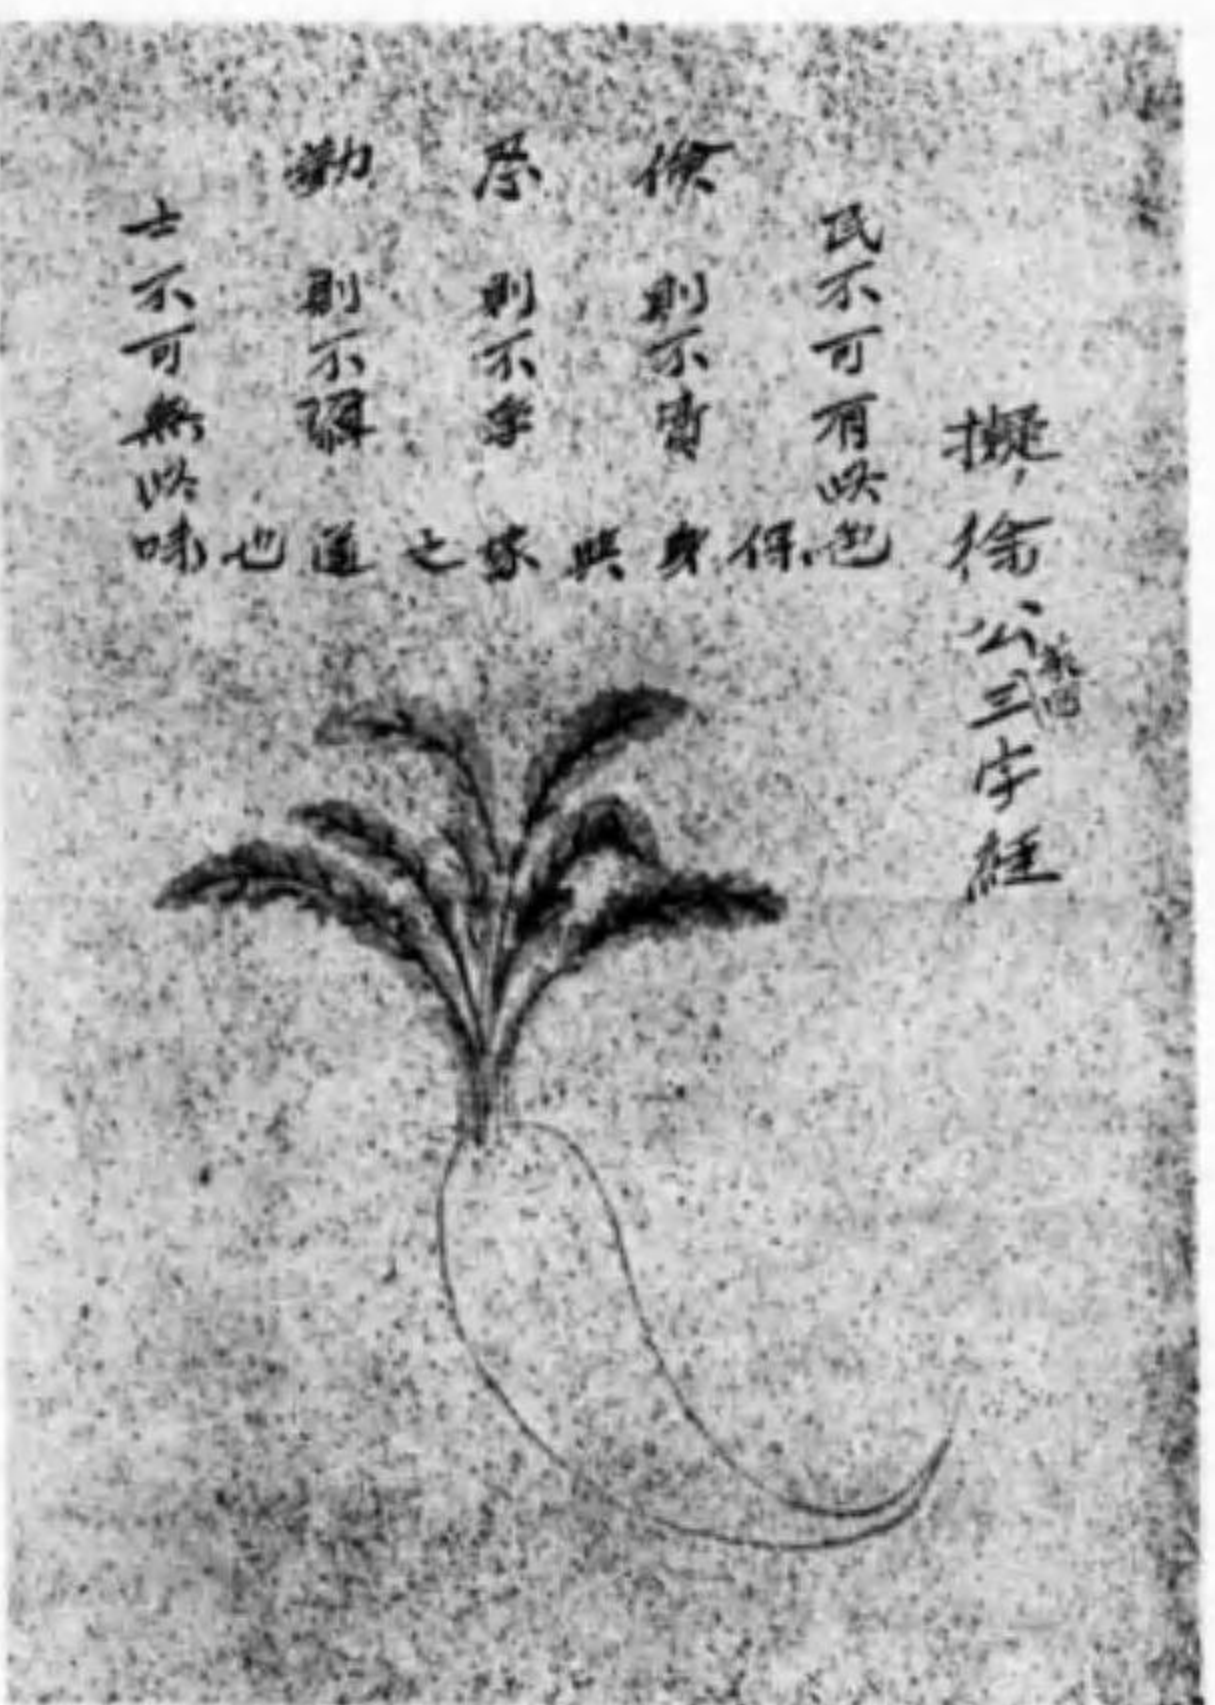 擬徐公三字經
民不可有此色
儉則不費
忍則不爭
勤則不隳
士不可無此味
保身與家之道也